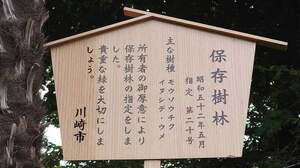 保存樹林
昭和五十二年五月
指定 第二十号
主な樹種 モウソウチク
イヌシデ・ウメ
所有者の御厚意により
保存樹林の指定をしま
した。
貴重な緑を大切にしま
しょう。
川崎市